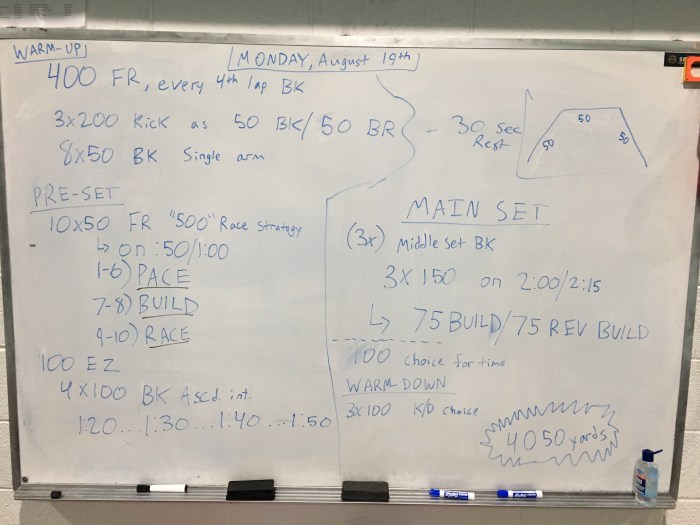 WARM-UP
MONDAY, August 19th
400 FR, every 4th lap BK
3x200 Kick as 50 BK/50 BR
8x50 BK Single arm
- 30 sec Rest
50
50
50
PRE-SET
10x50 FR "500" Race Strategy
↳ on :50/1:00
1-6) PACE
7-8) BUILD
9-10) RACE
100 EZ
4x100 BK Ascd. int.
1:20...1:30...1:40...1:50
MAIN SET
(3x) Middle Set BK
3x150 on 2:00/2:15
↳ 75 BUILD/75 REV BUILD
100 choice for time
WARM-DOWN
3x100 K/D choice
4050 yards